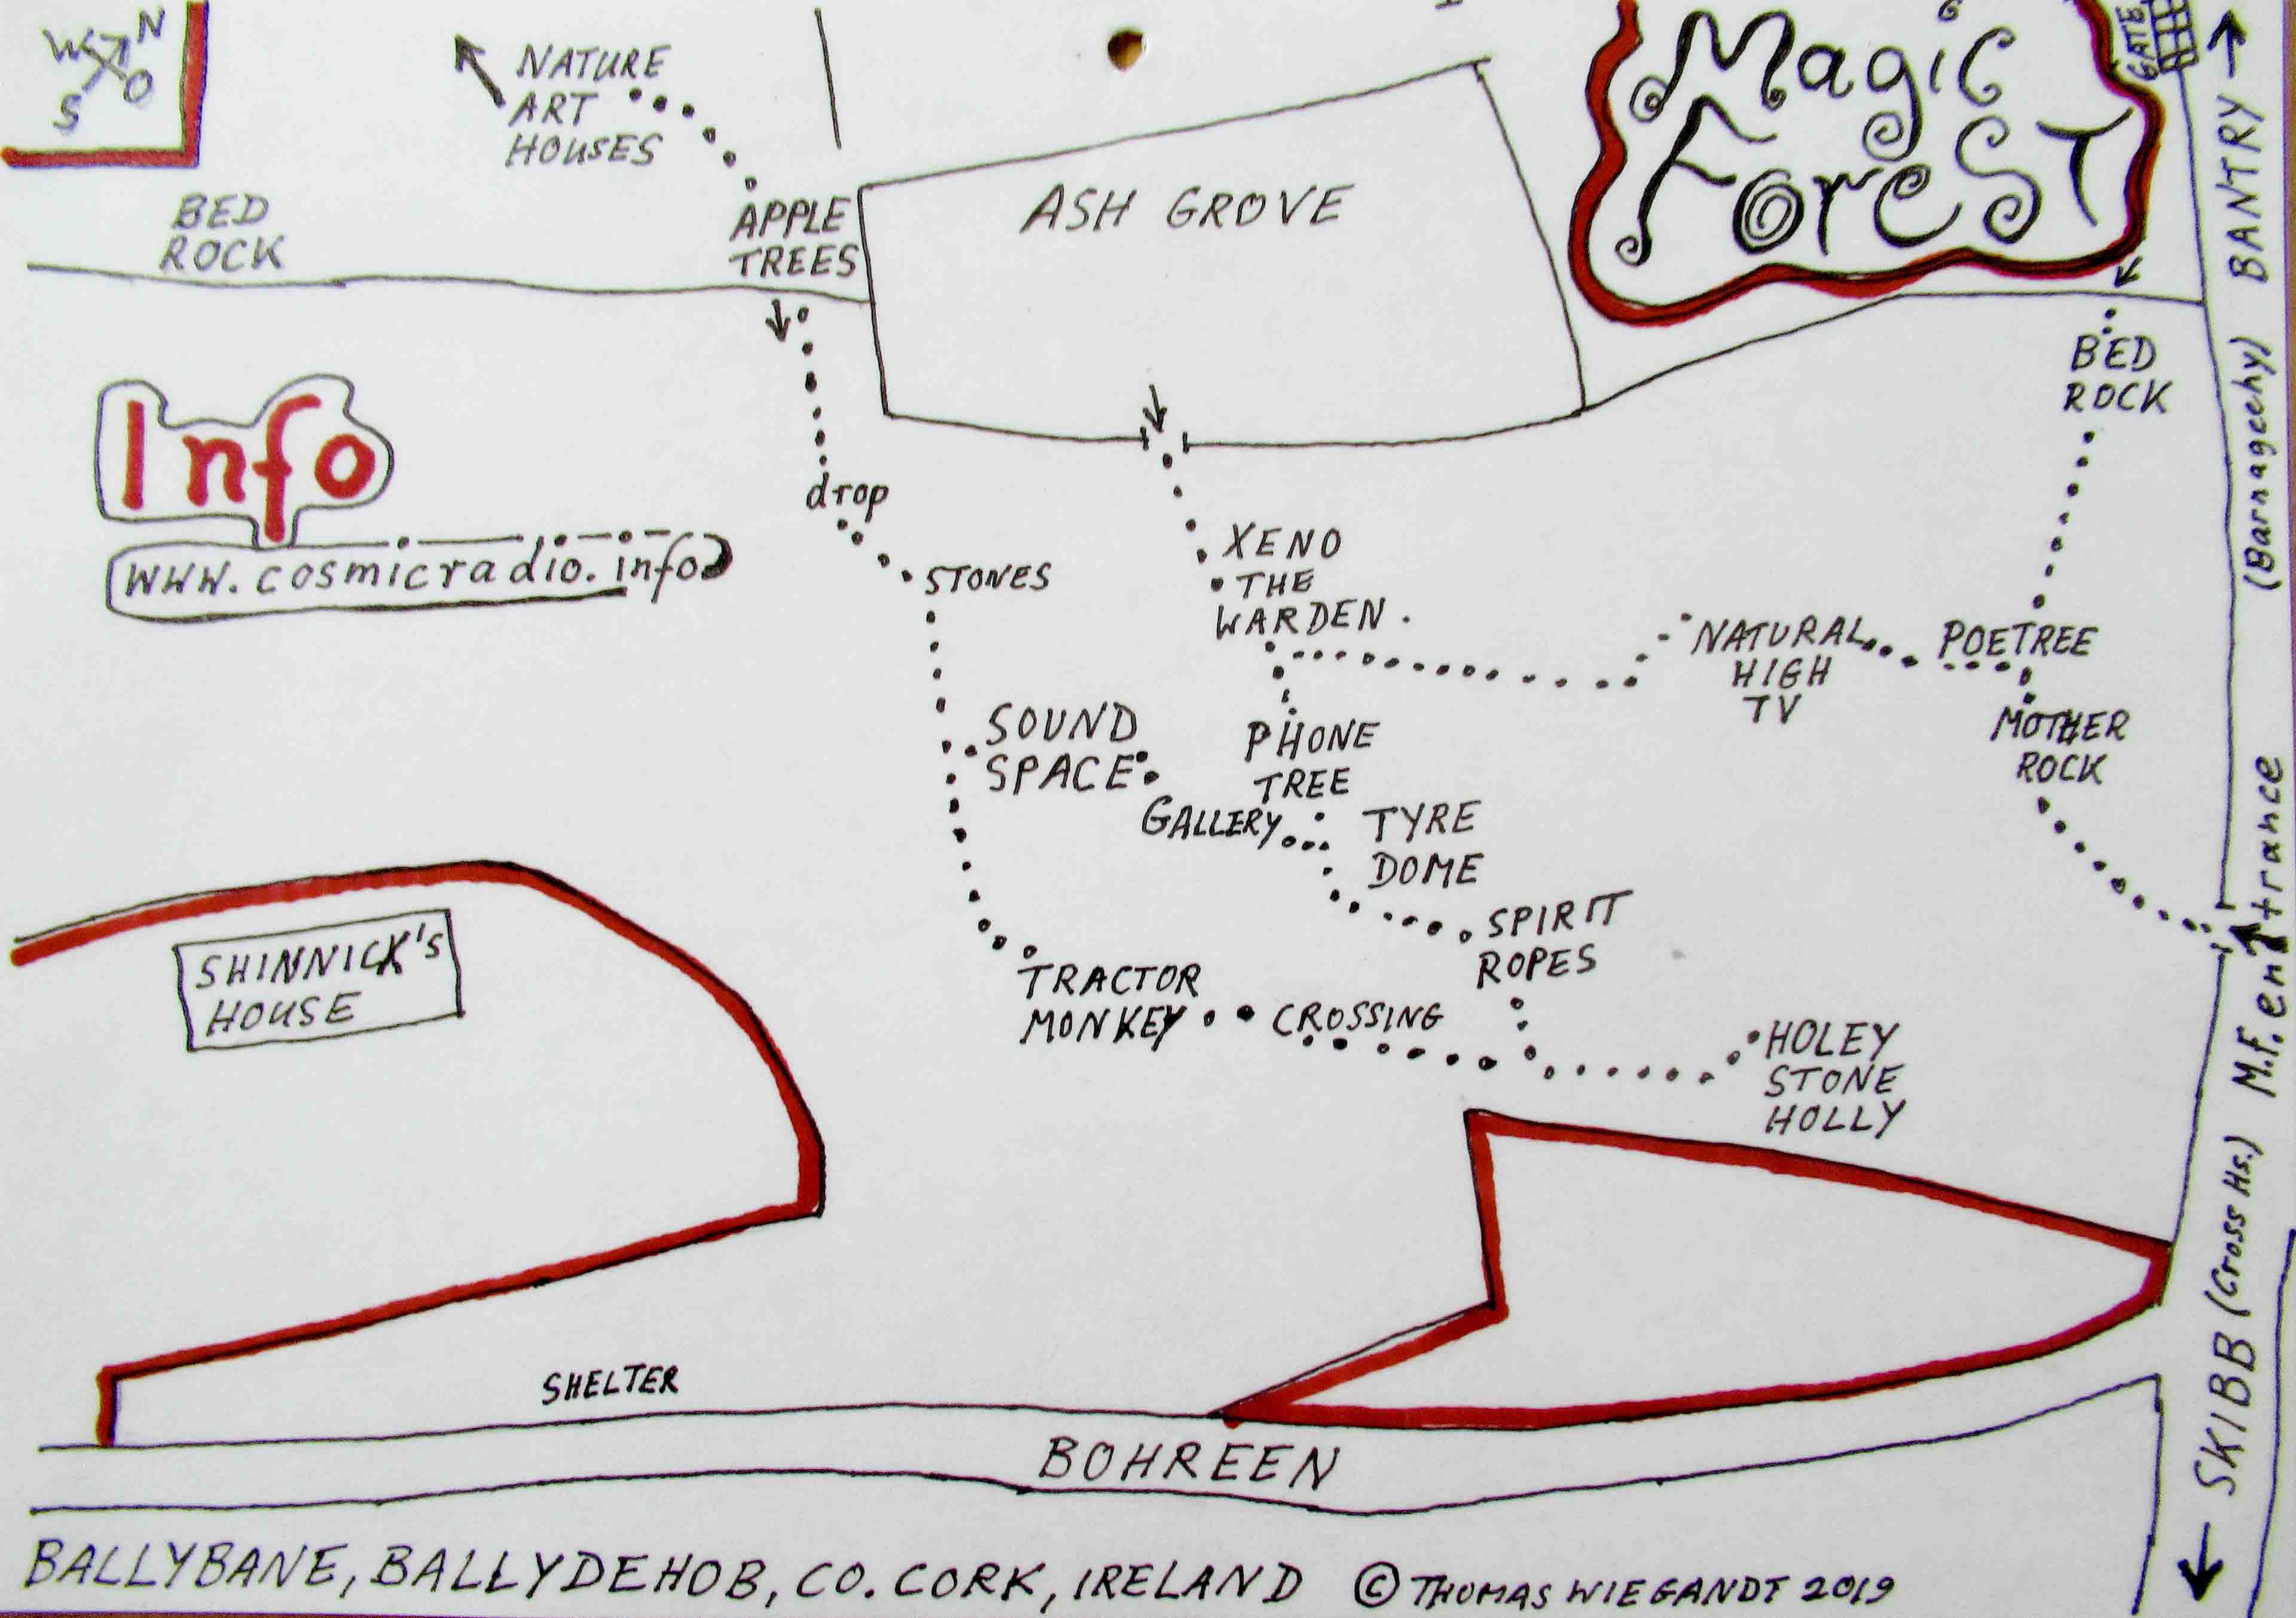 N
W
O
S
NATURE
ART
HOUSES
BED
ROCK
APPLE
TREES
ASH GROVE
Magic
ForeST
GATE
BANTRY
(Barnageehy)
Info
www.cosmicradio.info
drop
STONES
XENO
THE
WARDEN.
BED
ROCK
NATURAL
HIGH
TV
POETREE
MOTHER
ROCK
SOUND
SPACE
PHONE
TREE
GALLERY
TYRE
DOME
SPIRIT
ROPES
TRACTOR
MONKEY
CROSSING
HOLEY
STONE
HOLLY
M.F. entrance
SKIBB (Cross Hs.)
SHINNICK'S
HOUSE
SHELTER
BOHREEN
BALLYBANE, BALLYDEHOB, CO. CORK, IRELAND © THOMAS WIEGANDT 2019